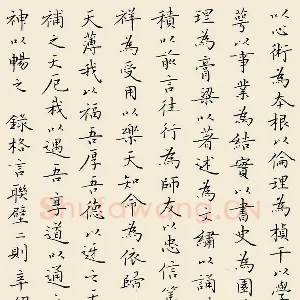 以心術為本根以倫理為楨干以學
萼以事業為結實以書史為園
理為膏粱以著述為文繡以誦
積以前言往行為師友以忠信篤
祥為受用以樂天知命為依歸
天薄我以福吾厚吾德以迓之
補之天厄我以遇吾亨道以通
神以暢之 錄格言聯璧二則 辛
Shufawang.CN